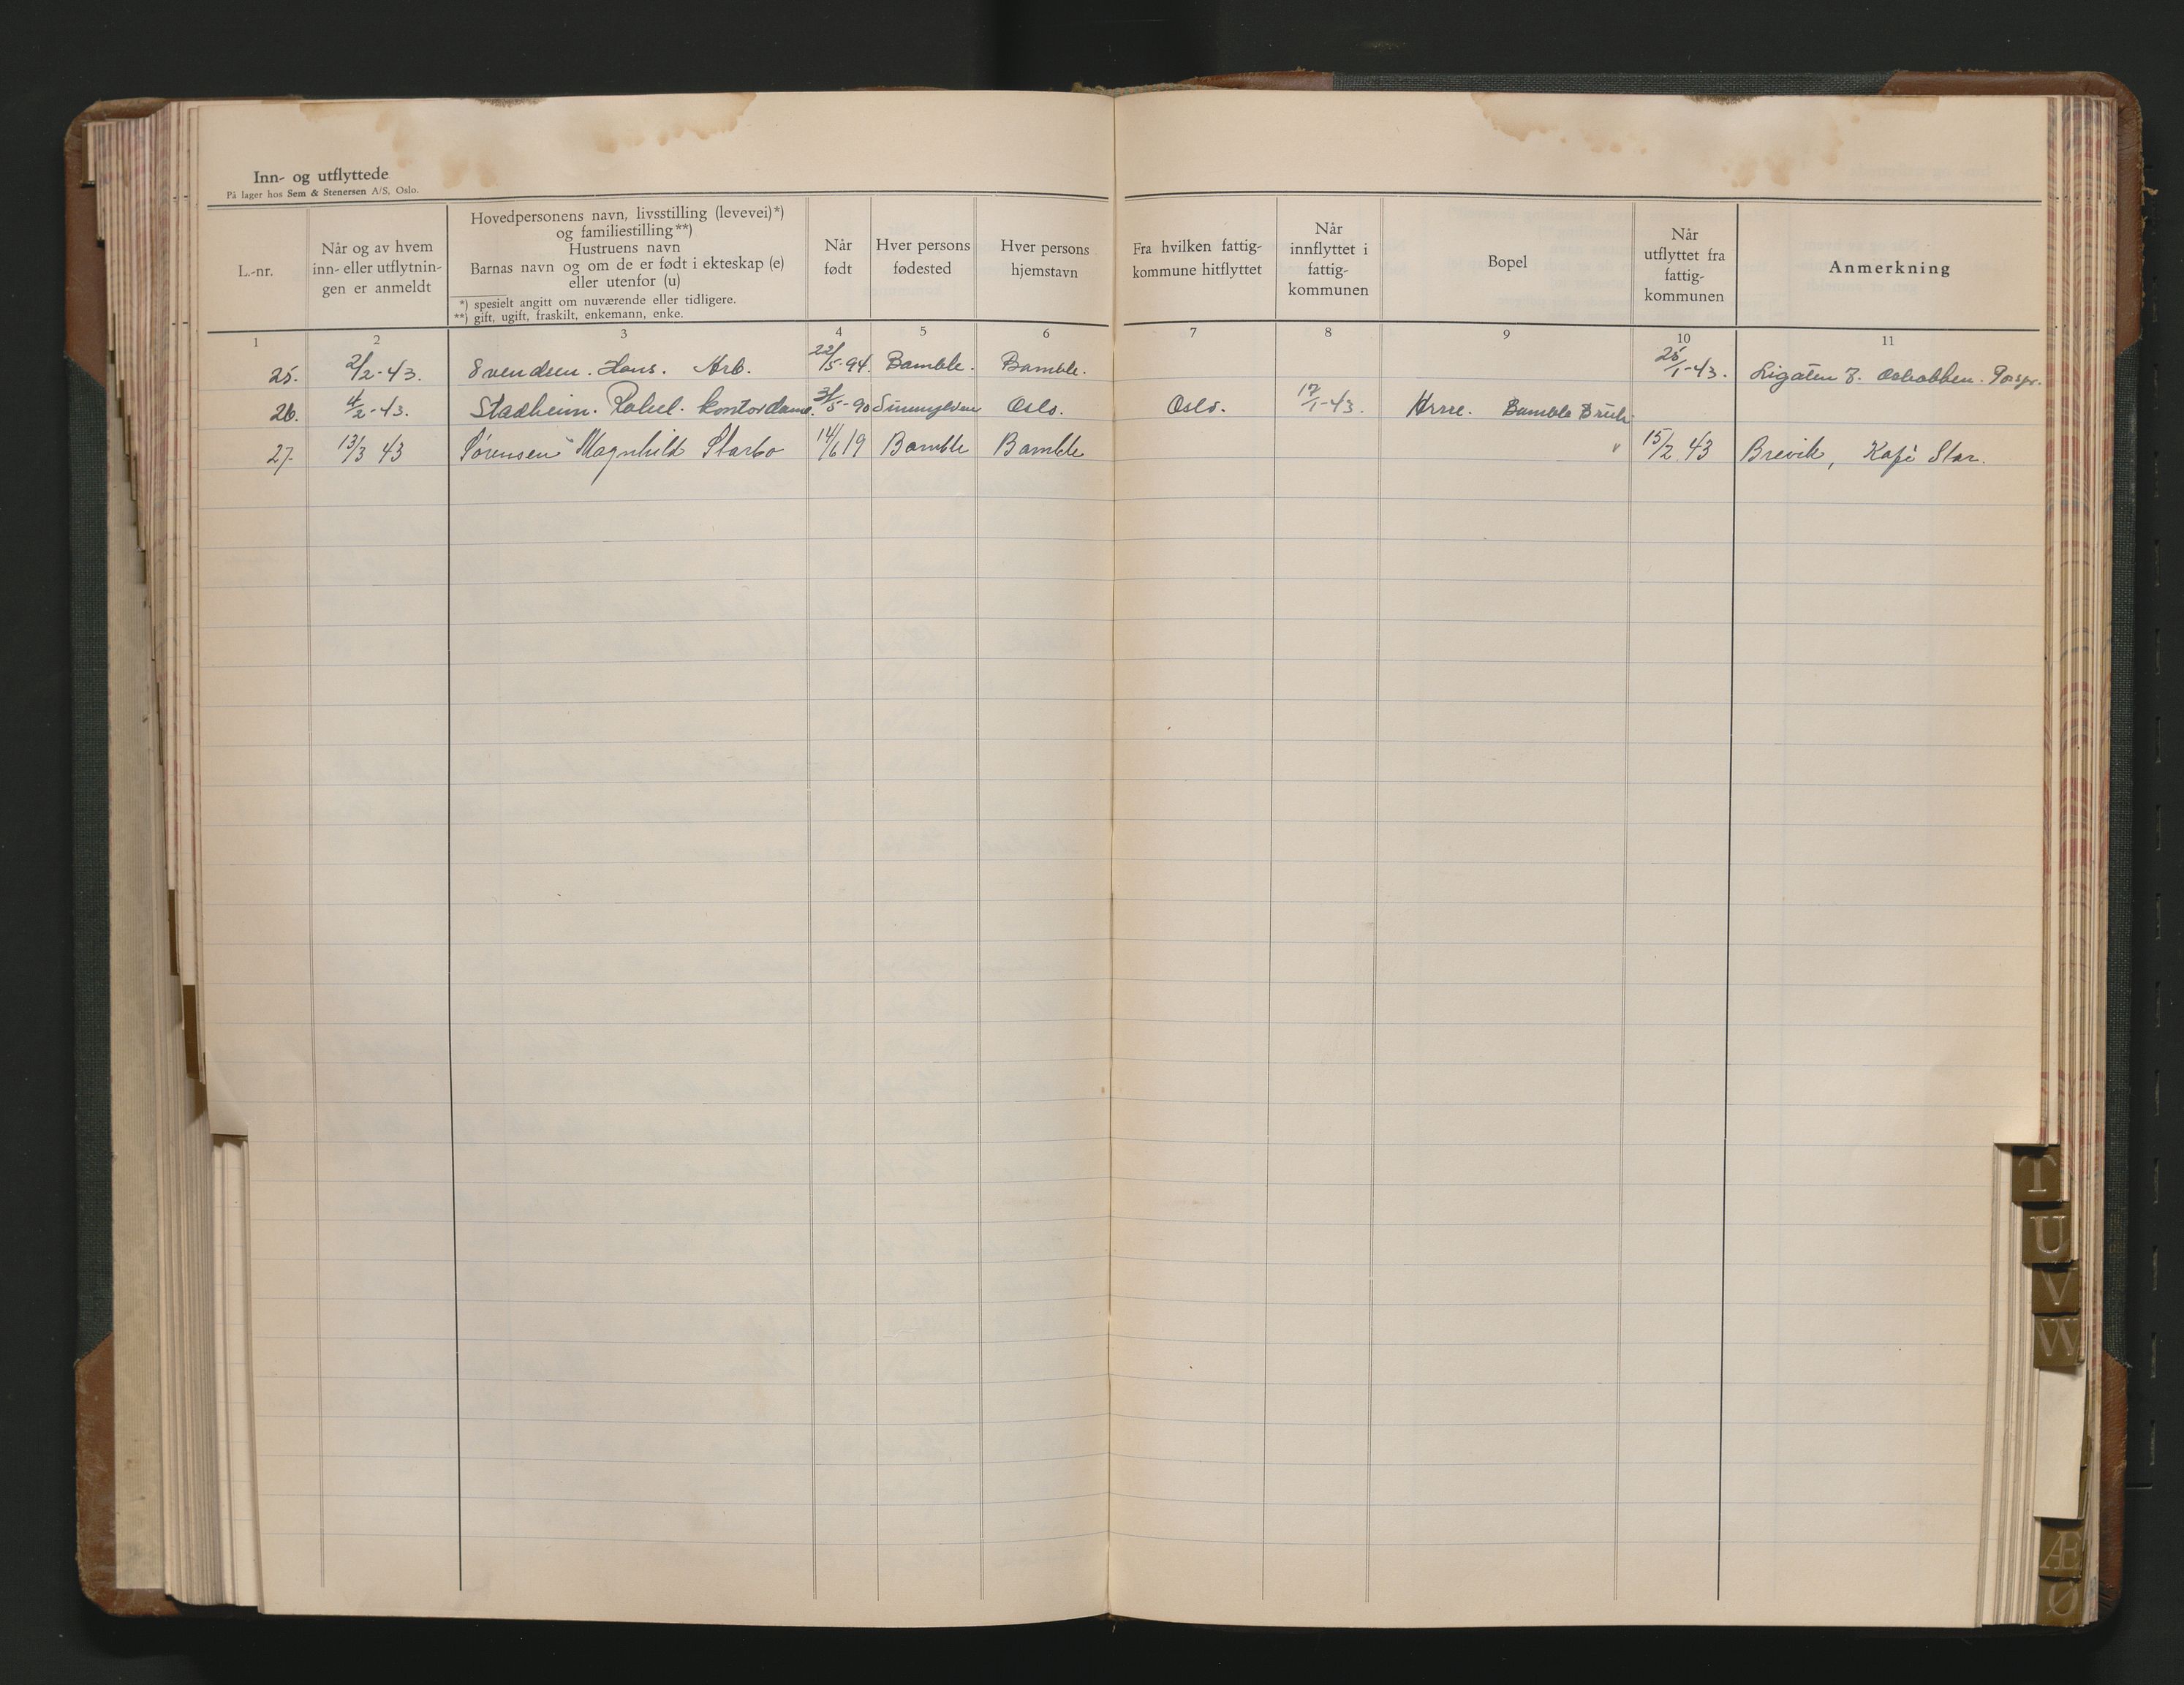 Inn- og utflyttede
På lager hos Sem & Stenersen A/S, Oslo.
L.-nr.
Når og av hvem
inn- eller utflytnin-
gen er anmeldt
Hovedpersonens navn, livsstilling (levevei)*)
og familiestilling**)
Hustruens navn
Barnas navn og om de er født i ekteskap (e)
eller utenfor (u)
*) spesielt angitt om nuværende eller tidligere.
**) gift, ugift, fraskilt, enkemann, enke.
Når
født
Hver persons
fødested
Hver persons
hjemstavn
Fra hvilken fattig-
kommune hitflyttet
Når
innflyttet i
fattig-
kommunen
Bopel
Når
utflyttet fra
fattig-
kommunen
Anmerkning
1 2 3 4 5 6 7 8 9 10 11
25. 2/2-43. Svendsen. Hans. Arb. 22/5-94. Bamble. Bamble. 25/1-43.
26. 4/2-43. Stadheim. Rakel. kontordame. 31/5-90 Oslo. Oslo. 17/1-43. Herre. Bamble Bruk
27. 13/3 43 Sørensen Magnhild Starbo 14/6 19 Bamble Bamble " 15/2 43 Brevik, Kafé Star.
T
U
V
W
Æ
Ø